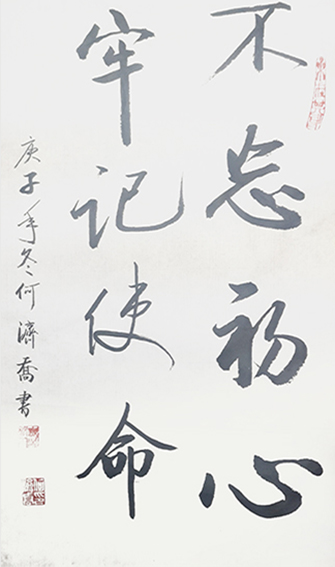 不忘初心
牢记使命
庚子年冬何濟喬書